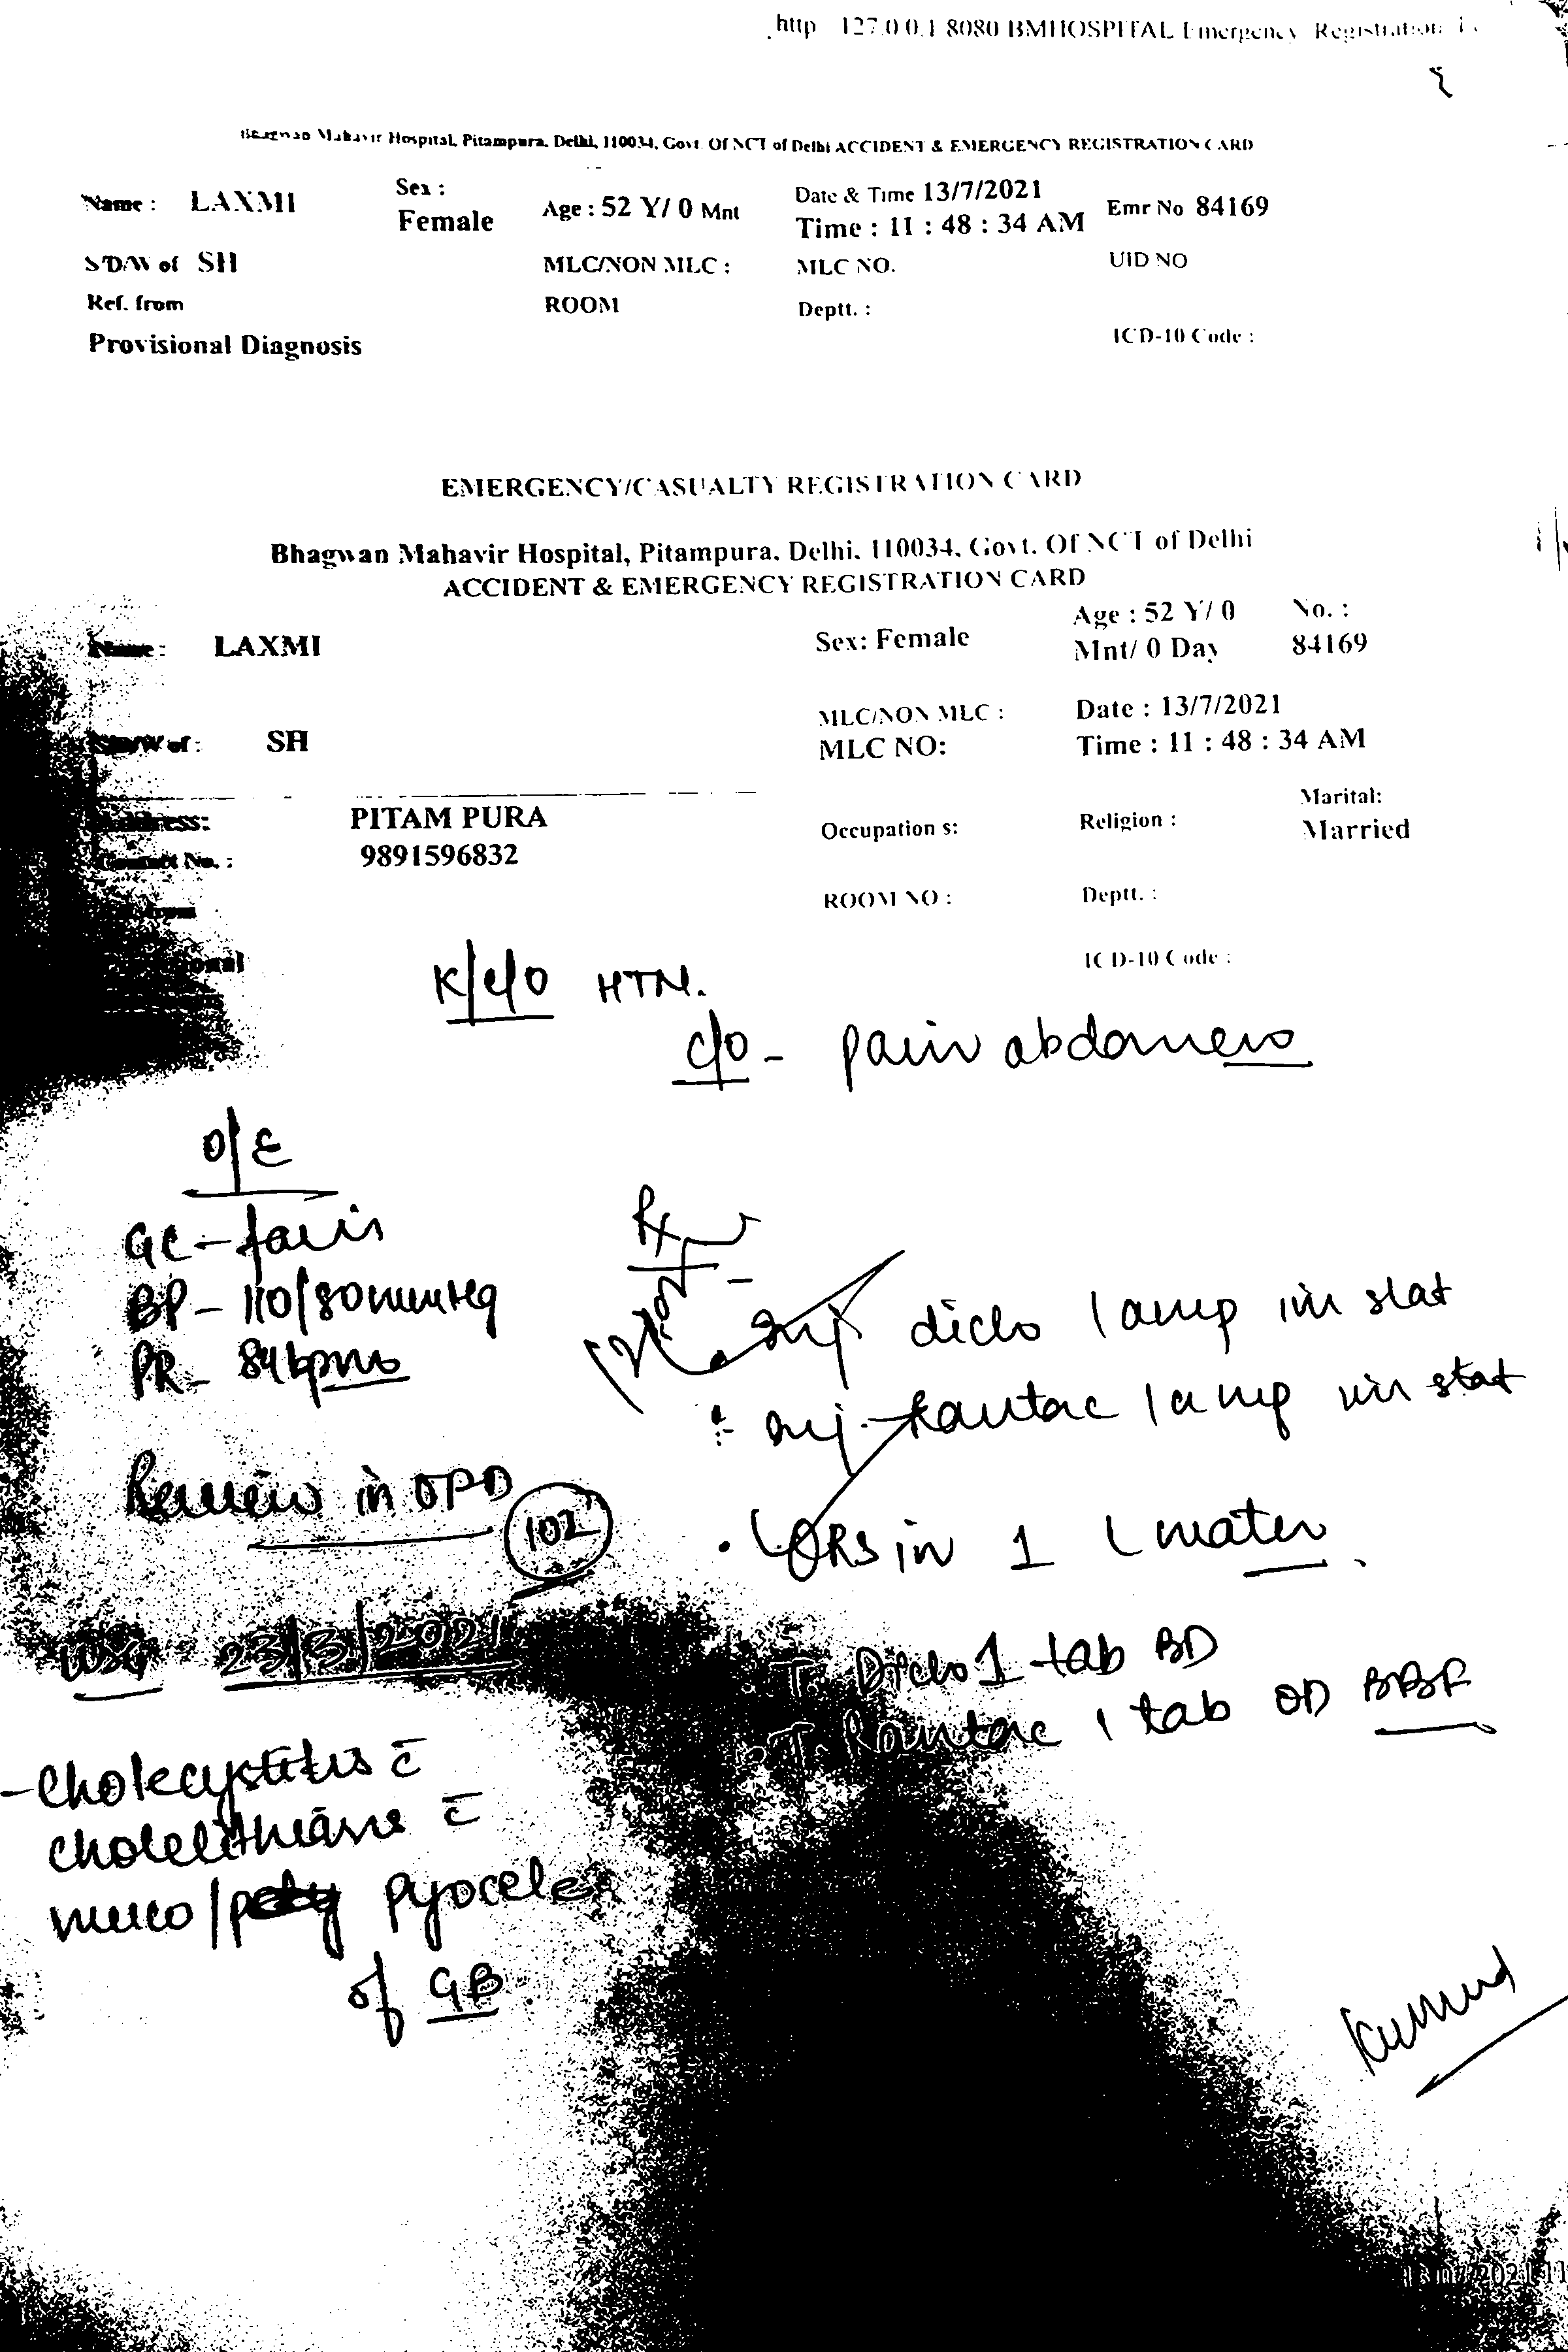 http 127.0.0.1 8080 BMHOSPITAL Emergency Registration
Bhagwan Mahavir Hospital, Pitampura, Delhi, 110034, Govt. Of NCT of Delhi ACCIDENT & EMERGENCY REGISTRATION CARD
Name : LAXMI Sex : Female Age : 52 Y/ 0 Mnt Date & Time 13/7/2021 Time : 11 : 48 : 34 AM Emr No 84169
S/D/W of SH MLC/NON MLC : MLC NO. UID NO
Ref. from ROOM Deptt. :
Provisional Diagnosis ICD-10 Code :
EMERGENCY/CASUALTY REGISTRATION CARD
Bhagwan Mahavir Hospital, Pitampura, Delhi, 110034, Govt. Of NCT of Delhi
ACCIDENT & EMERGENCY REGISTRATION CARD
Name : LAXMI Sex: Female Age : 52 Y/ 0 Mnt/ 0 Day No. : 84169
MLC/NON MLC : Date : 13/7/2021
S/D/W of : SH MLC NO: Time : 11 : 48 : 34 AM
Address: PITAM PURA Occupation s: Religion : Marital: Married
Contact No. : 9891596832
ROOM NO : Deptt. :
ICD-10 Code :
K/c/o HTN.
c/o - pain abdomen
O/E
GC - fair
Rx
BP - 110/80 mmHg
inj diclo 1 amp im stat
PR - 84 bpm
inj. Rantac 1 amp im stat
Review in OPD 102
ORS in 1 L water
USG 23/3/2021
T. Diclo 1 tab BD
T. Rantac 1 tab OD BBF
- Cholecystitis c̄
cholelithiasis c̄
muco/ pyocele
of GB
Kumud
13/07/2021 11